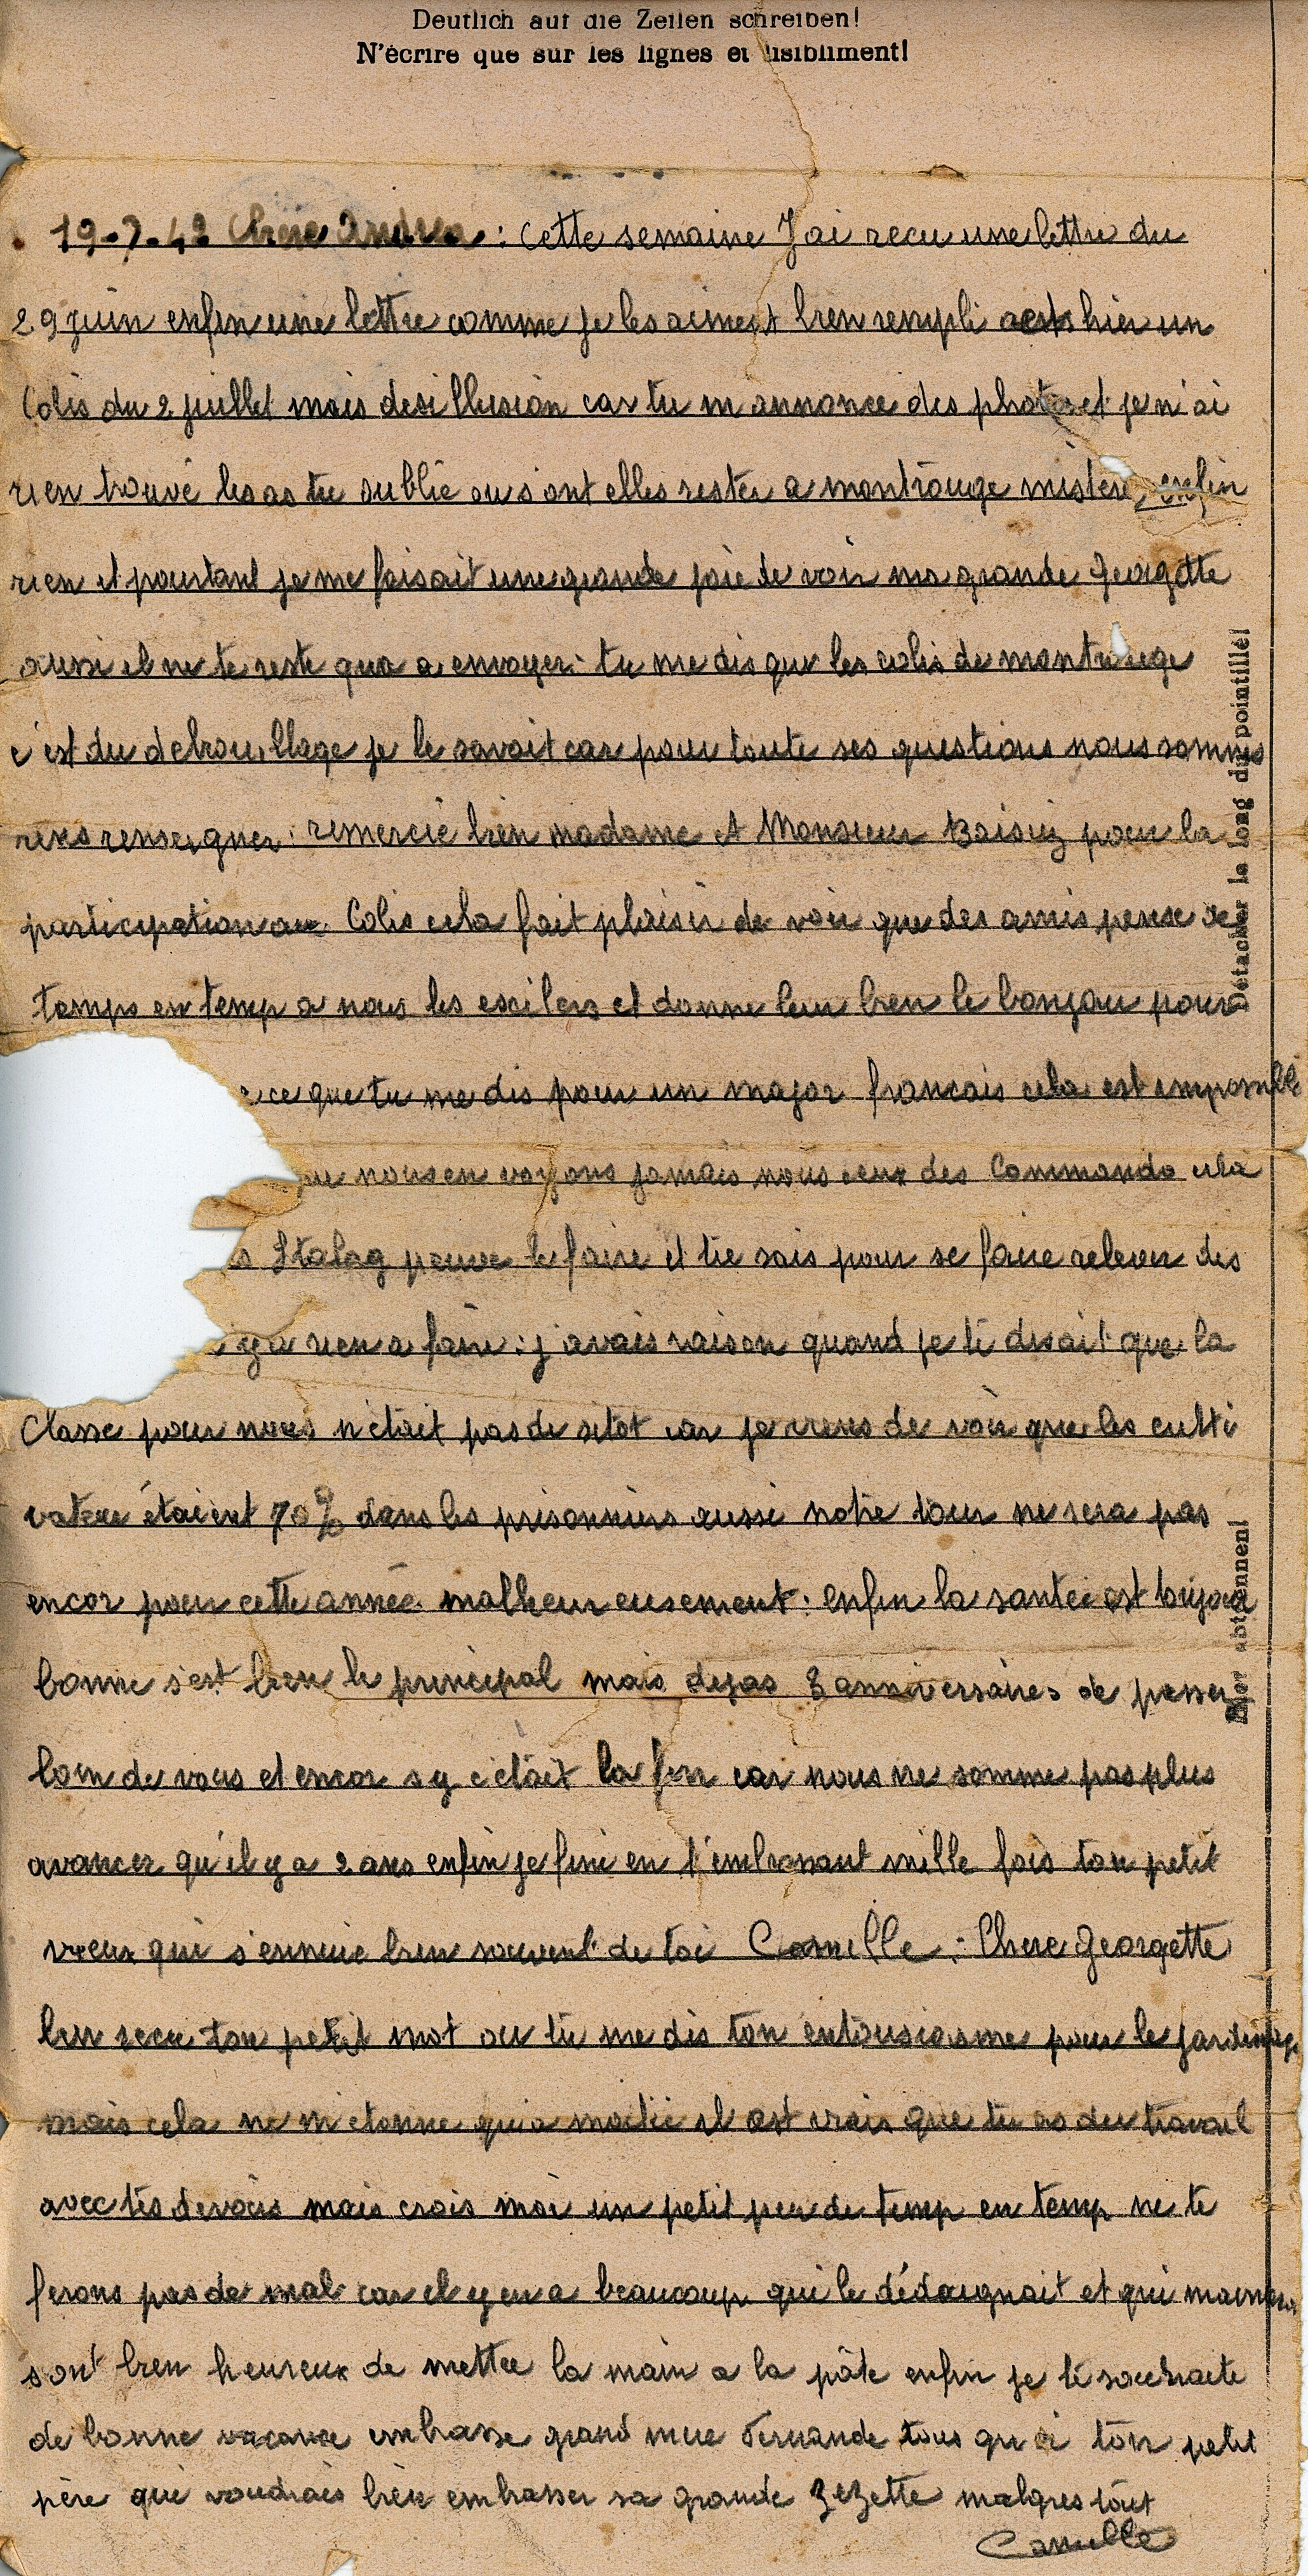 Deutlich auf die Zeilen schreiben!
N'écrire que sur les lignes et lisibliment!
19-7-42 Chère Andrea : cette semaine J ai recu une lettre du
29 juin enfin une lettre comme je les aimes bien rempli hier un
Colis du 2 juillet mais desillusion car tu m annonce des photos et je n'ai
rien trouvé les as tu oublié ou sont elles rester a montrouge mistere, enfin
rien et pourtant je me faisait une grande joie de voir ma grande Georgette
aussi il ne te reste qua a envoyer : tu me dis que les colis de montrouge
c'est du debrouillage je le savait car pour toute ses questions nous sommes
renseigner : remercie bien madame et Monsieur pour la
participation au Colis cela fait plaisir de voir que des amis pense de
temps en temp a nous les exilers et donne leur bien le bonjour pour
ce que tu me dis pour un major francais cela est impossible
nous en voyons jamais nous ceux des Commando cela
Stalag peuve le faire et tu sais pour se faire relever des
y a rien a faire : j'avais raison quand je te disait que la
Classe pour nous n'était pas de sitot car je viens de voir que les culti
vateur étaient 70% dans les prisonniers aussi notre tour ne sera pas
encor pour cette année malheureusement : enfin la santée est toujour
bonne s'est bien le principal mais dejas 3 anniversaires de passer
loin de vous et encor sy c'était la fin car nous ne somme pas plus
avancer qu'il y a 2 ans enfin je fini en t'embrassant mille fois ton petit
vieux qui s'ennuie bien souvent de toi Camille : Chere Georgette
bien recu ton petit mot ou tu me dis ton entousiasme pour le jardinage
mais cela ne m'etonne qu'a moitié il est vrais que tu as du travail
avec tes devoirs mais crois moi un petit peu de temp en temp ne te
ferons pas de mal car il y en a beaucoup qui le dédaignait et qui
sont bien heureux de mettre la main a la pâte enfin je te souhaite
de bonne vacance embrasse grand mere Fernande tous ton petit
père qui voudrais bien embrasser sa grande Zezette malgres tout
Camille
Détacher le long du pointillé!
Hier abtrennen!